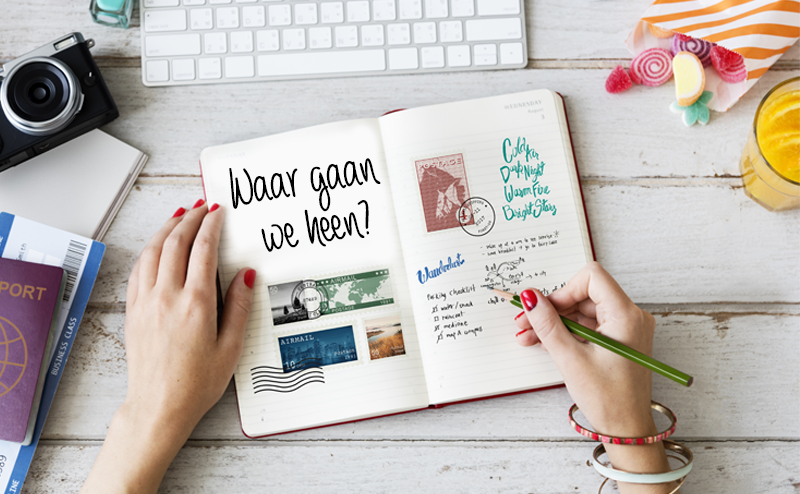 Waar gaan
we heen?
AIRMAIL
AIRMAIL
POSTAGE
10
POSTAGE
WEDNESDAY
Cold Air
Dark Night
Warm Fire
Bright Stars
Wanderlust
Packing Checklist
water / snack
raincoat
medicine
map & compass
PORT
BUSINESS CLASS